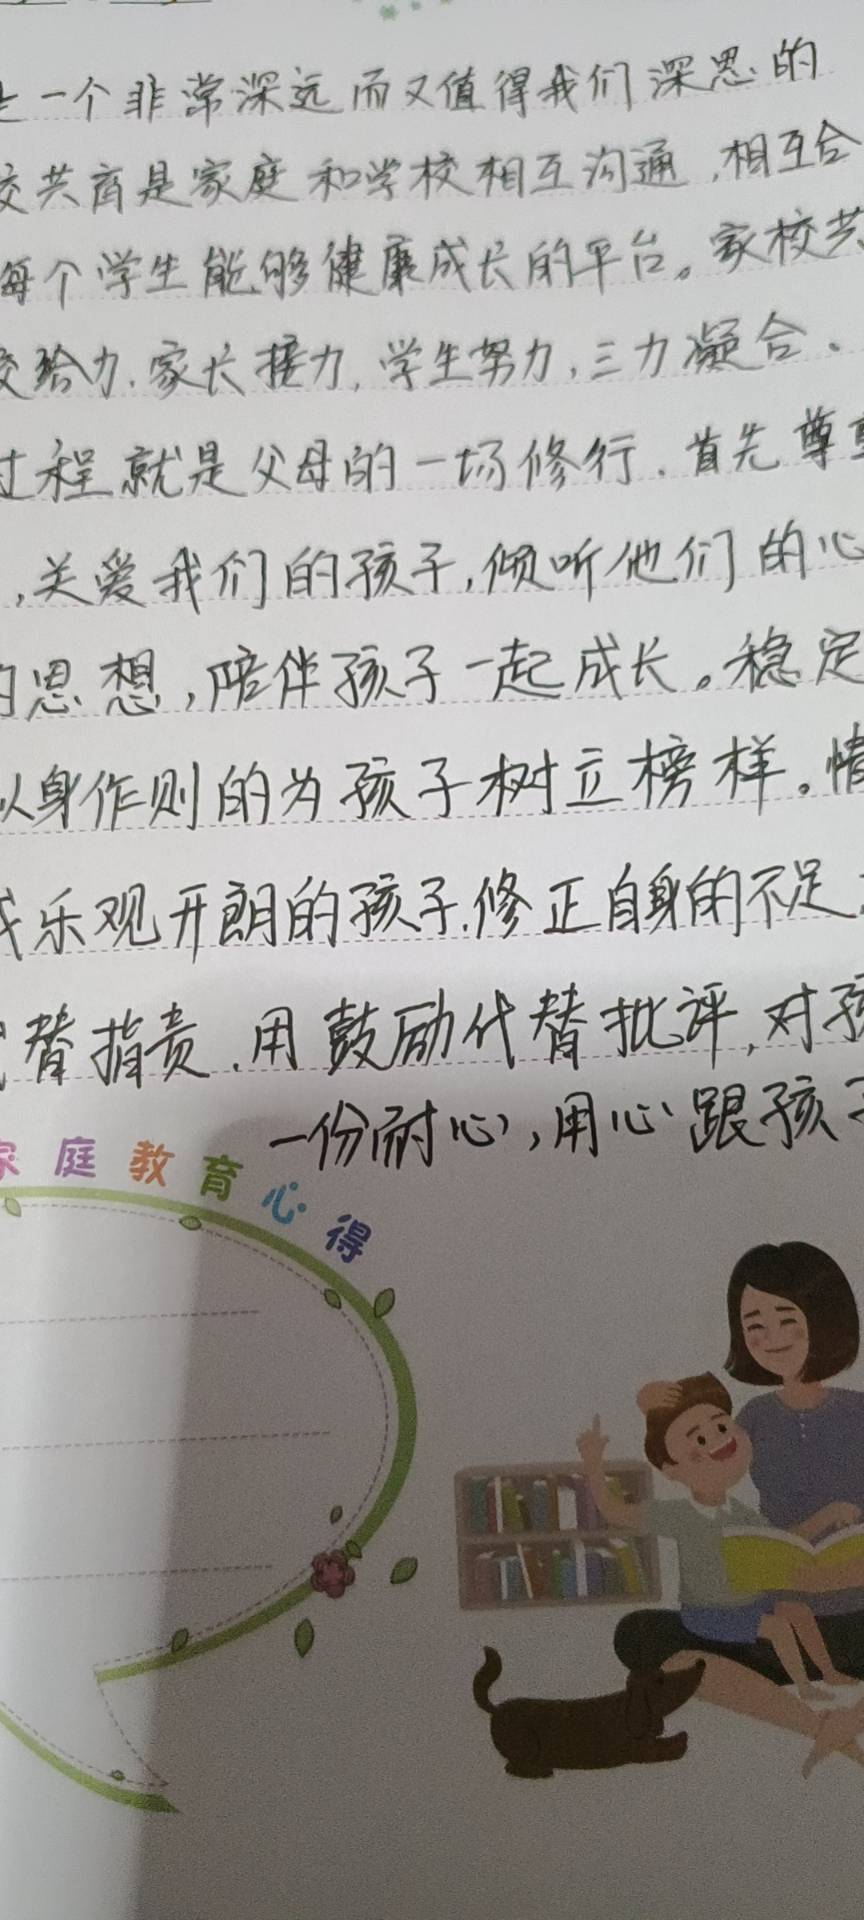 一个非常深远而又值得我们深思的
校共商是家庭和学校相互沟通,相互合
每个学生能够健康成长的平台。家校共
校给力.家长接力,学生努力,三力凝合、
过程就是父母的一场修行.首先尊重
,关爱我们的孩子,倾听他们的心
的思想,陪伴孩子一起成长。稳定
以身作则的为孩子树立榜样。情
成乐观开朗的孩子.修正自身的不足
替指责.用鼓励代替批评,对孩
一份耐心,用心跟孩子
家庭教育心得